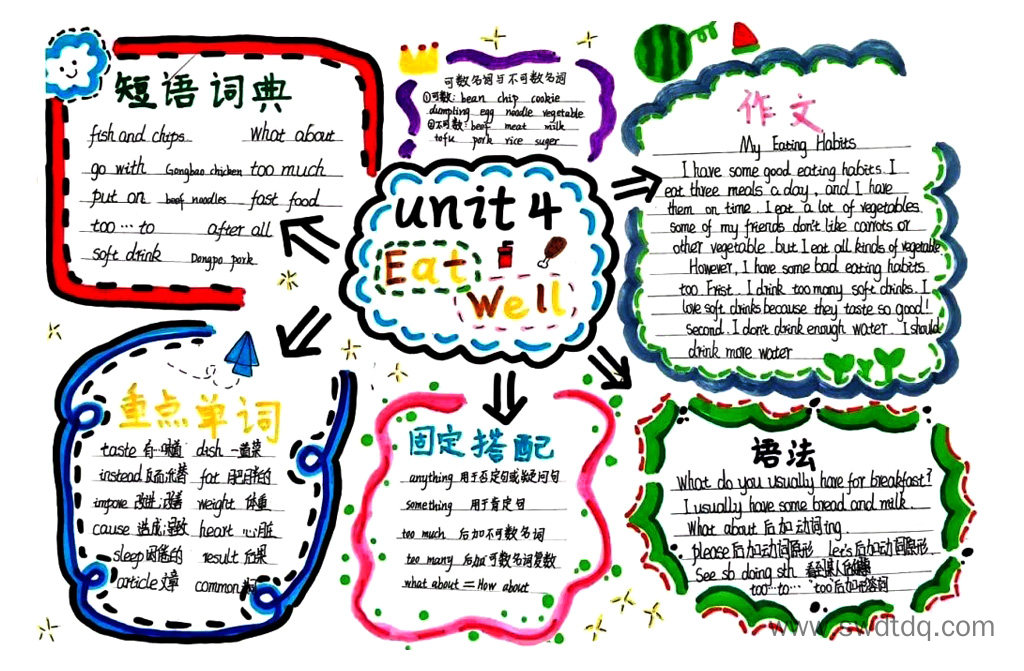 短语词典
fish and chips What about
go with Gongbao chicken too much
put on beef noodles fast food
too…to after all
soft drink Dongpo pork
可数名词与不可数名词
①可数: bean chip cookie
dumpling egg noodle vegetable
②不可数: beef meat milk
tofu pork rice suger
unit 4
Eat
Well
作文
My Eating Habits
I have some good eating habits. I
eat three meals a day, and I have
them on time. I eat a lot of vegetables
some of my friends don't like carrots or
other vegetable but I eat all kinds of vegetable
However, I have some bad eating habits
too. Frist. I drink too many soft drinks. I
love soft drinks because they taste so good!
second. I don't drink enough water. I should
drink more water
重点单词
taste 有…味道 dish 一道菜
instead 反而;代替 fat 肥胖的
improve 改进;改善 weight 体重
cause 造成;导致 heart 心脏
sleepy 困倦的 result 后果
article 文章 common
固定搭配
anything 用于否定句或疑问句
something 用于肯定句
too much 后加不可数名词
too many 后加可数名词复数
what about = How about
语法
What do you usually have for breakfast?
I usually have some bread and milk.
What about 后加动词ing
please 后加动词原形 let's 后加动词原形
See sb doing sth 看到某人在做
too…to… too后加形容词
www.swdtdq.com